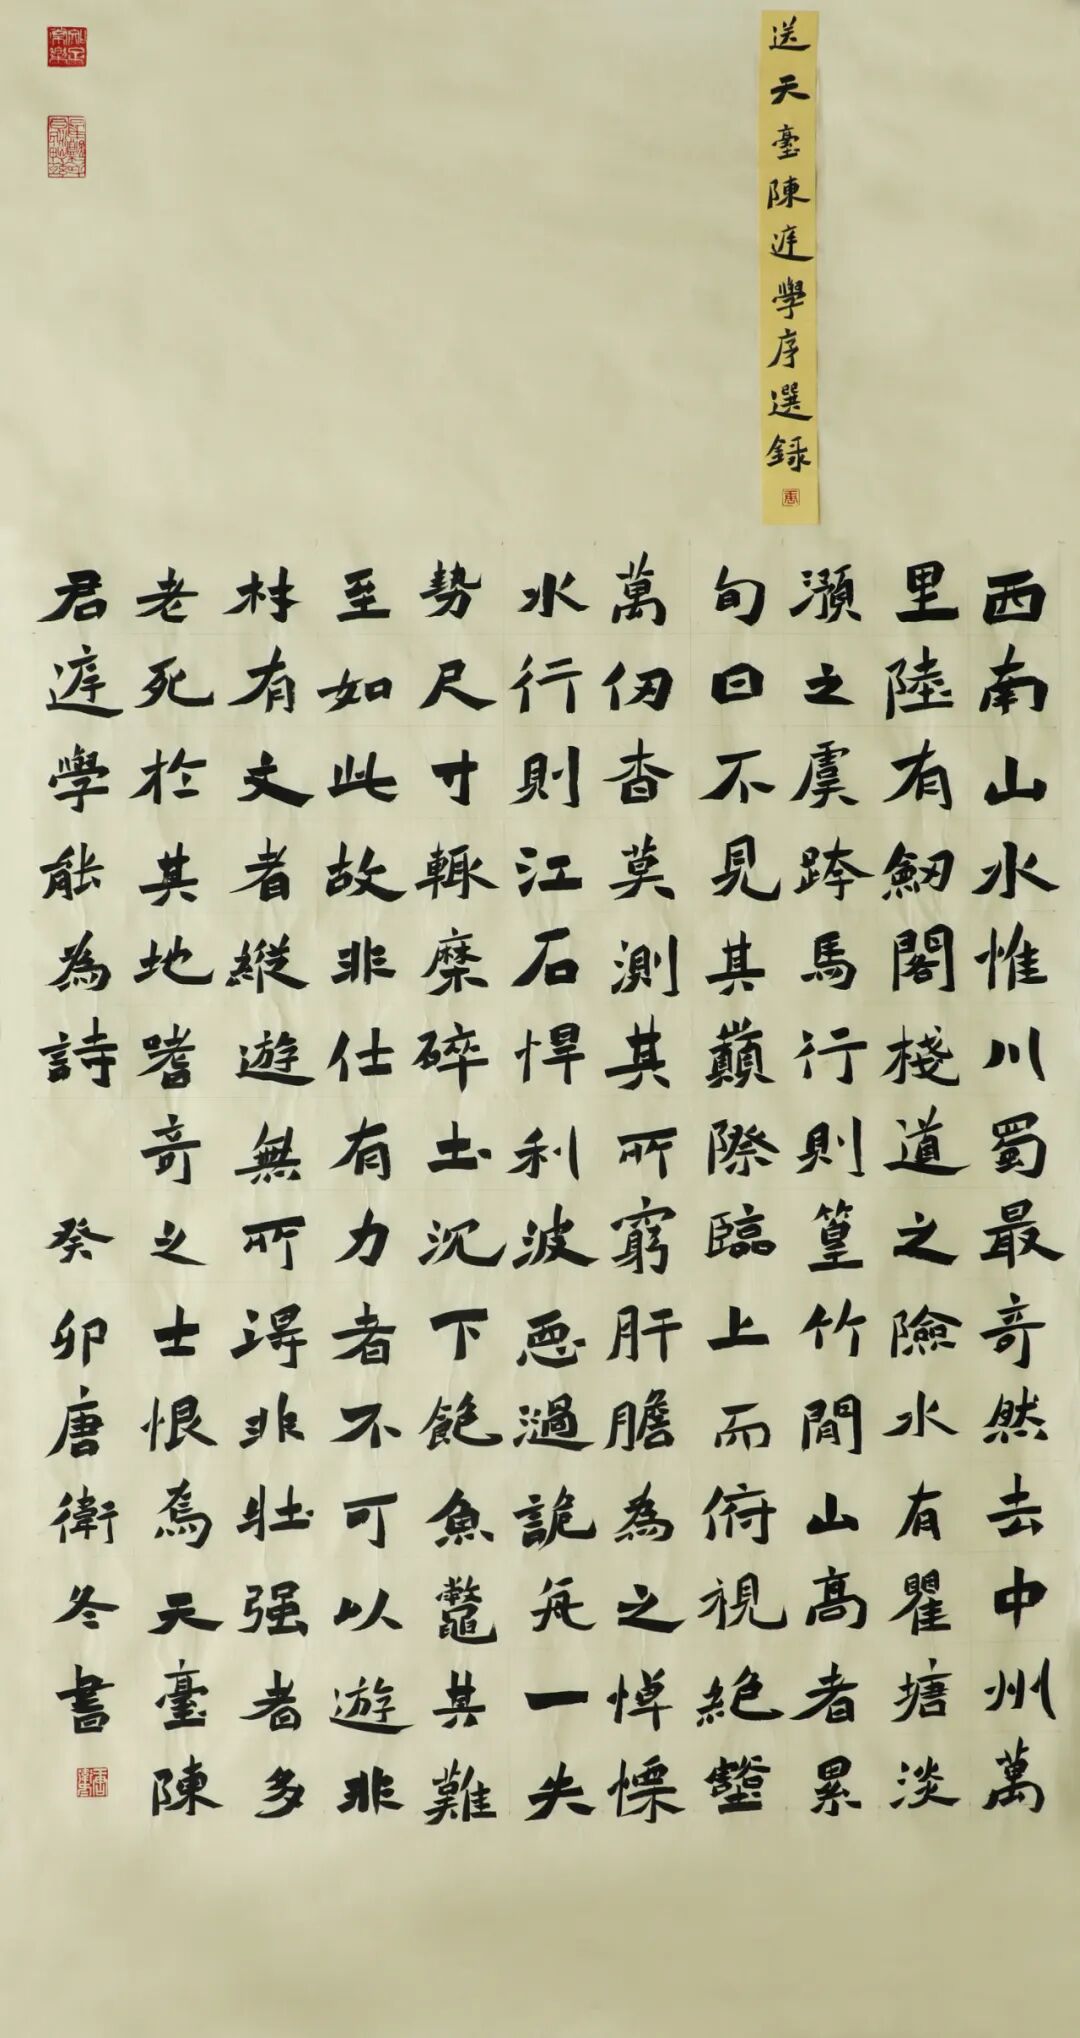 送天臺陳庭學序選録
西南山水惟川蜀最奇然去中州萬
里陸有劒閣棧道之險水有瞿塘淡
澦之虞跨馬行則篁竹間山高者累
旬日不見其巔際臨上而俯視絕壑
萬仞杳莫測其所窮肝膽為之悼慄
水行則江石悍利波惡渦詭舟一失
勢尺寸輒糜碎土沉下飽魚鼈其難
至如此故非仕有力者不可以遊非
材有文者縱遊無所得非壯强者多
老死於其地嗜奇之士恨焉天臺陳
君庭學能為詩 癸卯唐衛冬書